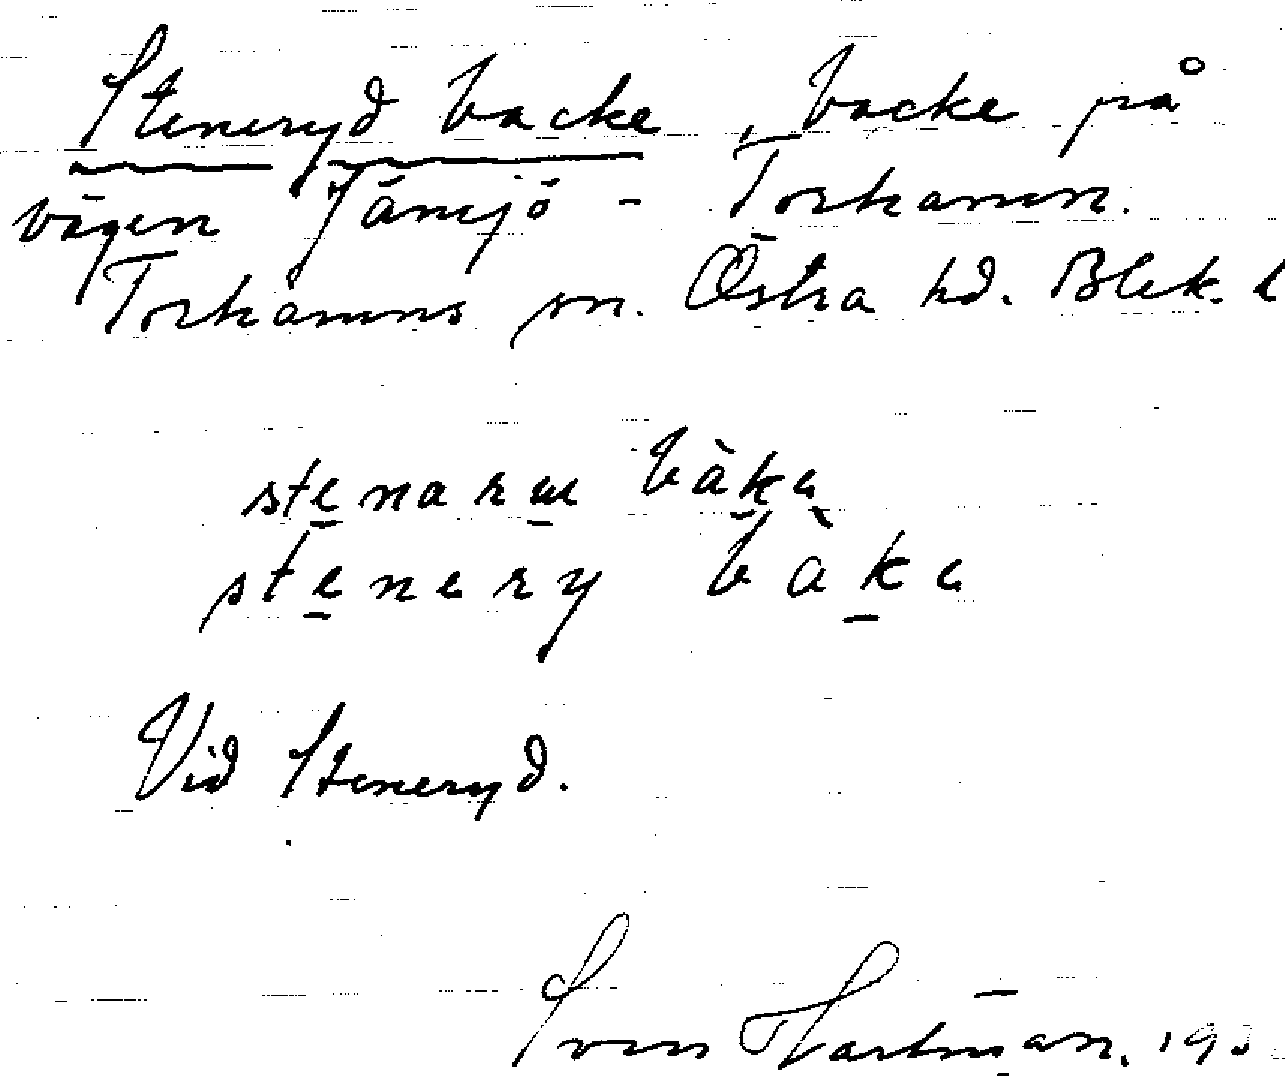 Steneryd backe, backe på
vägen Jämjö - Torhamn.
Torhamns sn. Östra hd. Blek. l
stenarɯ bàkɐ
stenery bàke
Vid Steneryd.
Sven Hartman. 193